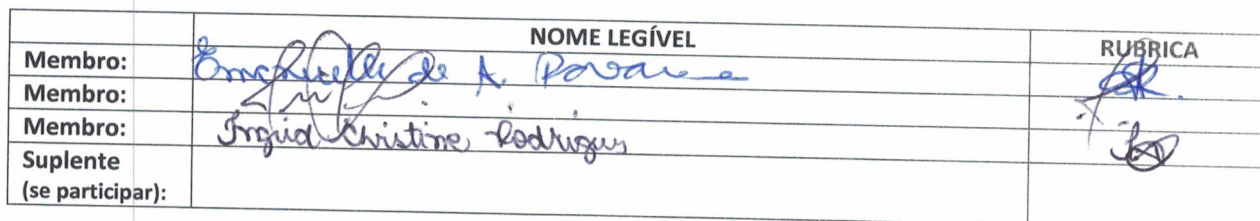 NOME LEGÍVEL RUBRICA
Membro: de A.
Membro:
Membro: Ingrid Christine Rodrigues
Suplente
(se participar):